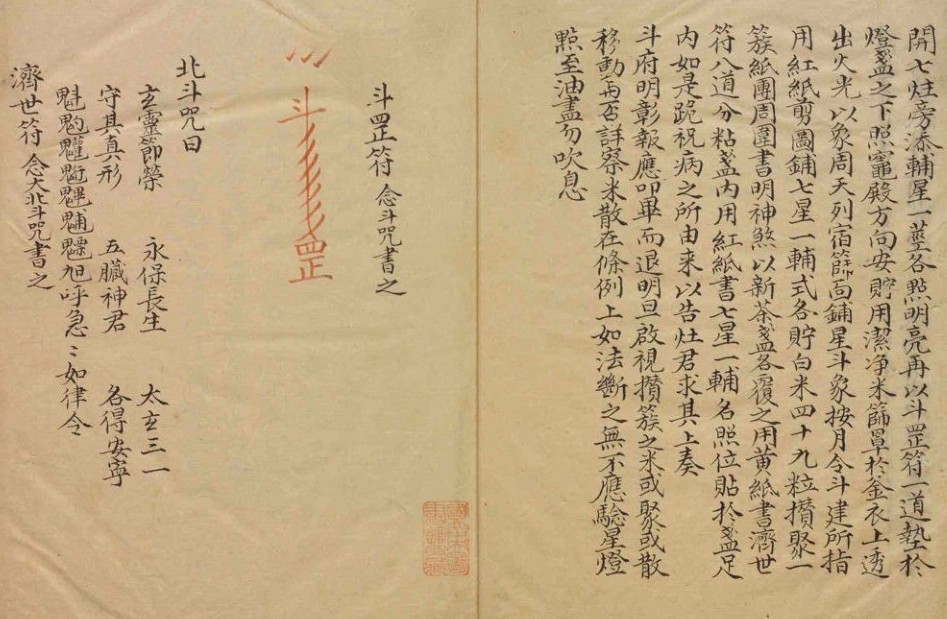 開七炷旁添輔星一莖各點明亮再以斗罡符一道墊於
燈盞之下照竈殿方向安貯用潔净米篩罩於釜衣上透
出火光以象周天列宿篩面鋪星斗象按月令斗建所指
用紅紙剪圖鋪七星一輔式各貯白米四十九粒攢聚一
簇紙團周圍書明神煞以新茶盞各覆之用黄紙書濟世
符八道分粘盞内用紅紙書七星一輔名照位貼於盞足
内如是跪祝病之所由来以告灶君求其上奏
斗府明彰報應叩畢而退明旦啟視攢簇之米或聚或散
移動與否詳察米散在條例上如法斷之無不應驗星燈
點至油盡勿吹息
斗罡符 念斗咒書之
斗 罡
北斗咒曰
玄靈節榮 永保長生 太玄三一
守其真形 五臟神君 各得安寕
魁䰢䰡魓䰣䰤䰥旭呼急〻如律令
濟世符 念大北斗咒書之